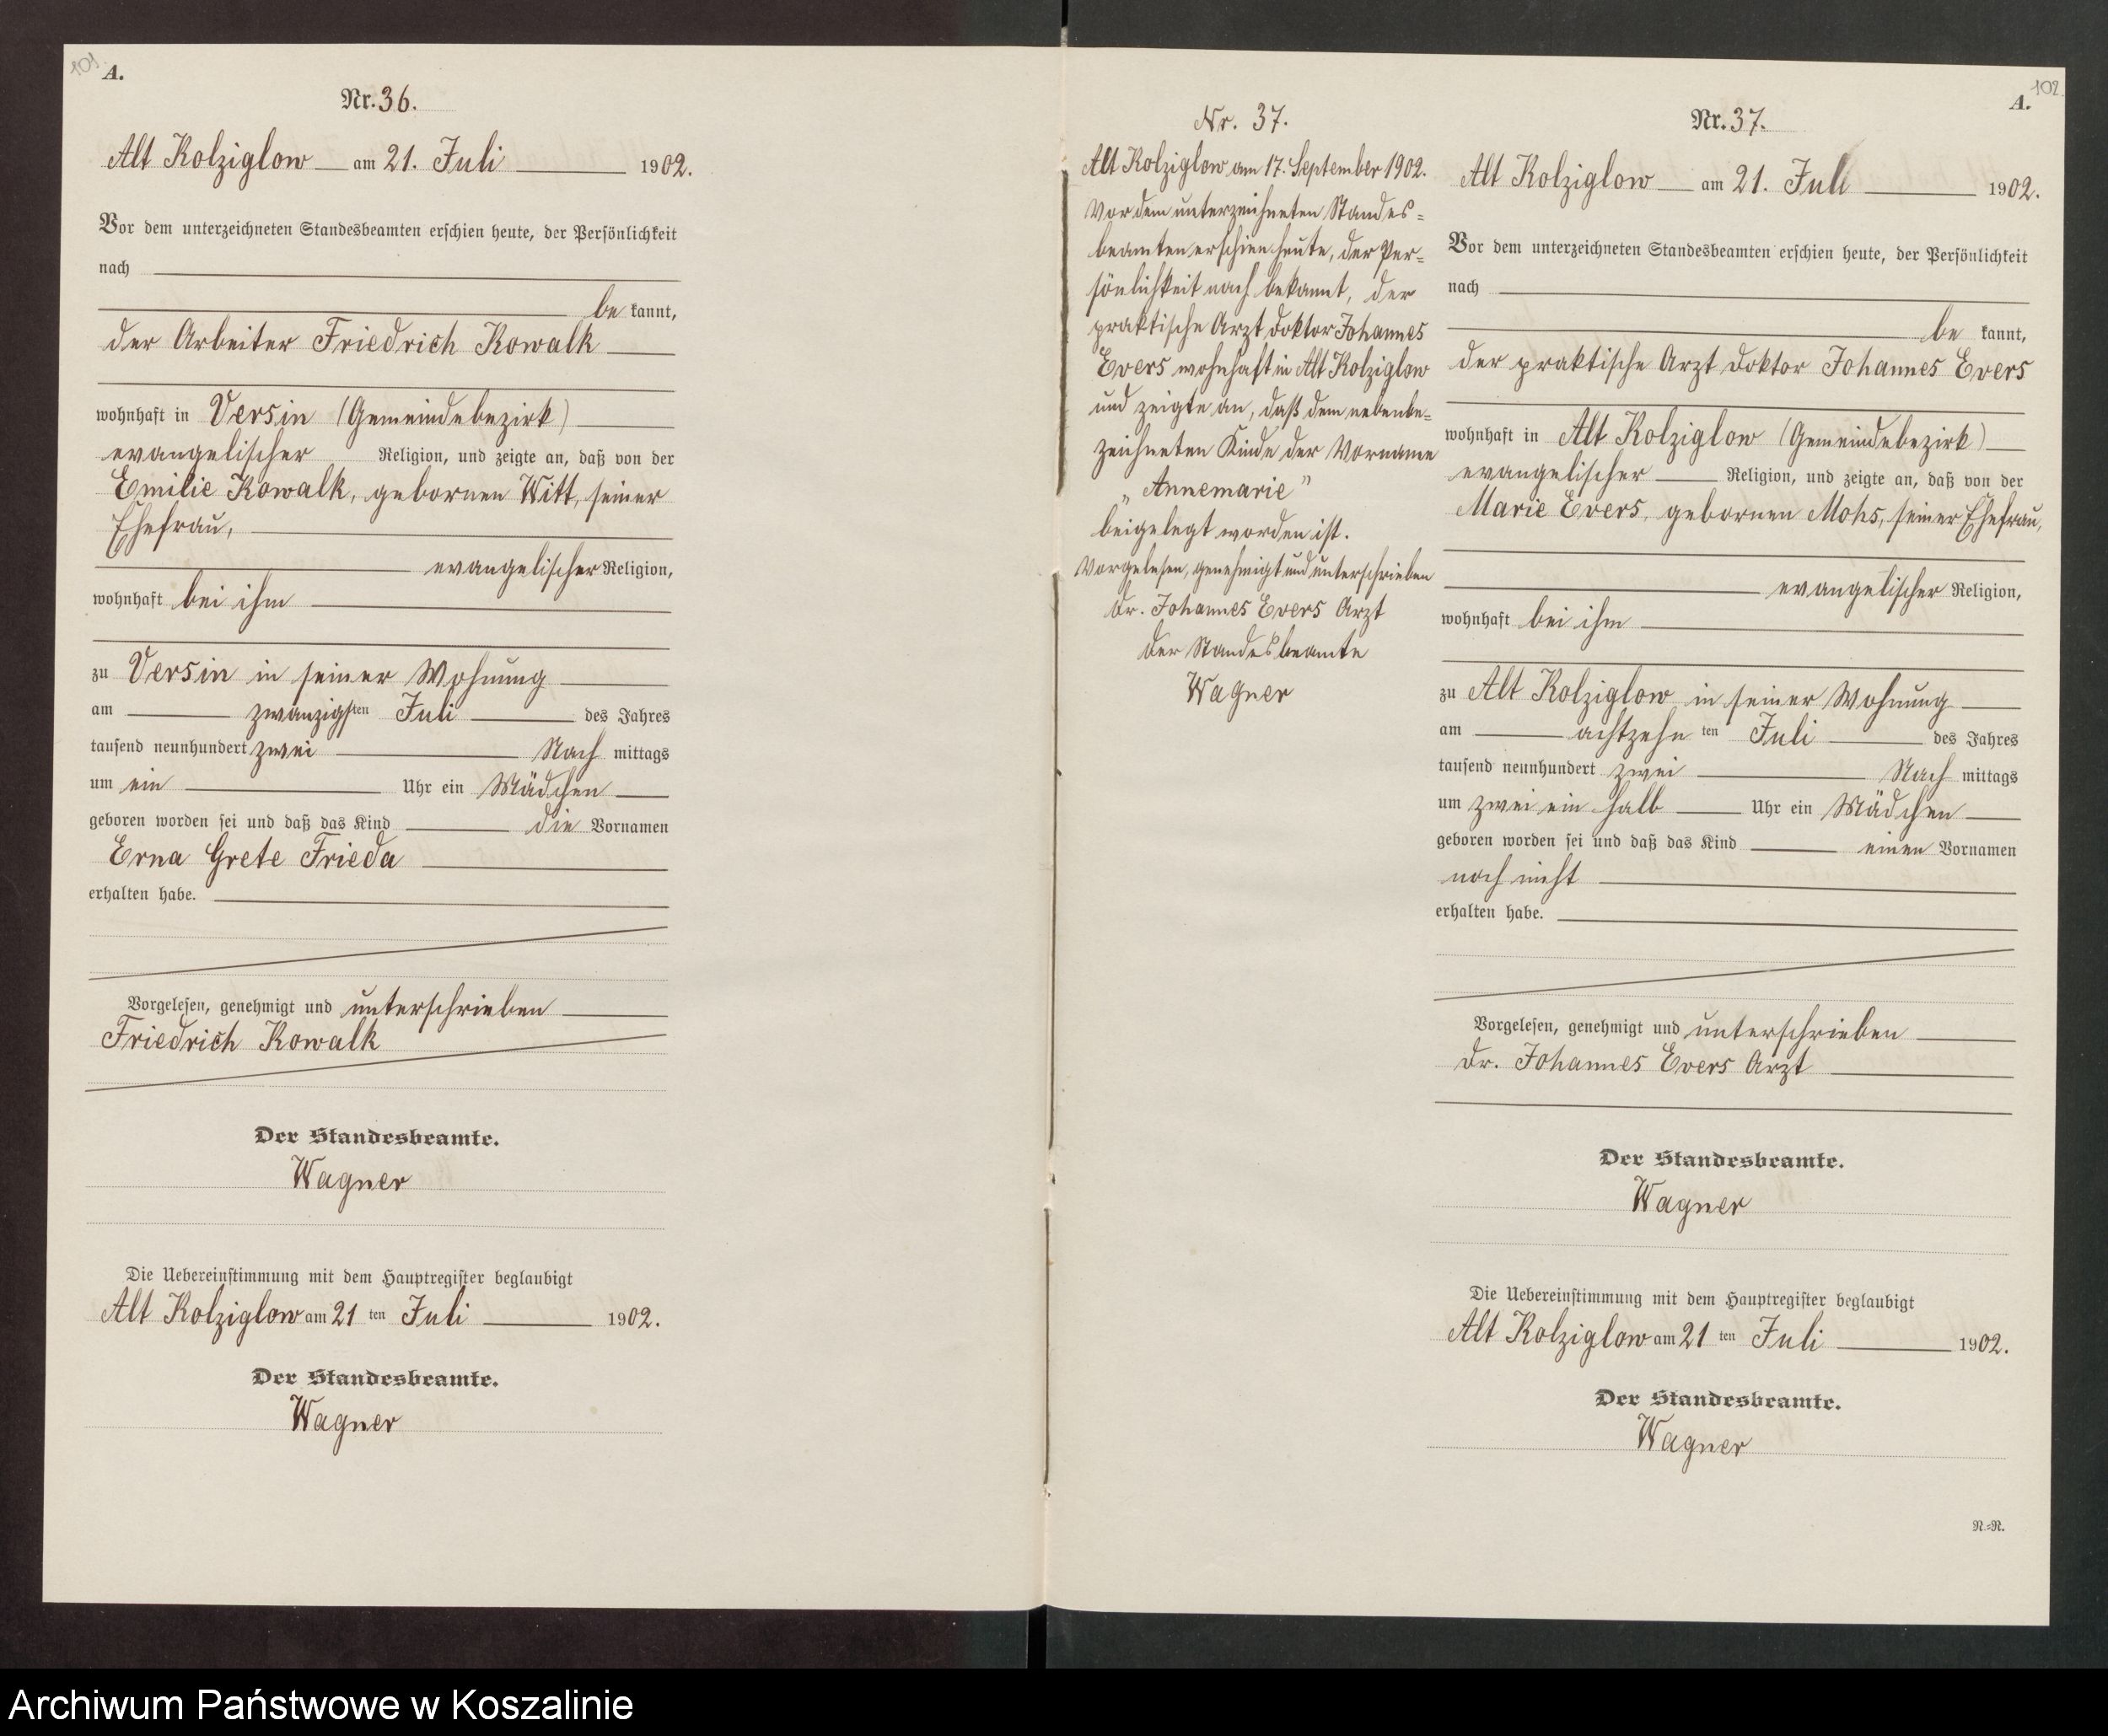 101.
A.
Nr. 36.
Alt Kolziglow am 21. Juli 1902.
Vor dem unterzeichneten Standesbeamten erschien heute, der Persönlichkeit
nach
be kannt,
der Arbeiter Friedrich Kowalk
wohnhaft in Versin (Gemeindebezirk)
evangelischer Religion, und zeigte an, daß von der
Emilie Kowalk, gebornen Witt, seiner
Ehefrau,
evangelischer Religion,
wohnhaft bei ihm
zu Versin in seiner Wohnung
am zwanzigsten Juli des Jahres
tausend neunhundert zwei Nach mittags
um ein Uhr ein Mädchen
geboren worden sei und daß das Kind die Vornamen
Erna Grete Frieda
erhalten habe.
Vorgelesen, genehmigt und unterschrieben
Friedrich Kowalk
Der Standesbeamte.
Wagner
Die Uebereinstimmung mit dem Hauptregister beglaubigt
Alt Kolziglow am 21 ten Juli 1902.
Der Standesbeamte.
Wagner
Nr. 37.
Alt Kolziglow am 17. September 1902.
Vor dem unterzeichneten Standes=
beamten erschien heute, der Per=
sönlichkeit nach bekannt, der
praktische Arzt Doktor Johannes
Evers wohnhaft in Alt Kolziglow
und zeigte an, daß dem nebenbe=
zeichneten Kinde der Vorname
„Annemarie”
beigelegt worden ist.
Vorgelesen, genehmigt und unterschrieben
Dr. Johannes Evers Arzt
Der Standesbeamte
Wagner
102.
A.
Nr. 37.
Alt Kolziglow am 21. Juli 1902.
Vor dem unterzeichneten Standesbeamten erschien heute, der Persönlichkeit
nach
be kannt,
der praktische Arzt Doktor Johannes Evers
wohnhaft in Alt Kolziglow (Gemeindebezirk)
evangelischer Religion, und zeigte an, daß von der
Marie Evers, gebornen Mohs, seiner Ehefrau,
evangelischer Religion,
wohnhaft bei ihm
zu Alt Kolziglow in seiner Wohnung
am achtzehn ten Juli des Jahres
tausend neunhundert zwei Nach mittags
um zwei ein halb Uhr ein Mädchen
geboren worden sei und daß das Kind einen Vornamen
noch nicht
erhalten habe.
Vorgelesen, genehmigt und unterschrieben
Dr. Johannes Evers Arzt
Der Standesbeamte.
Wagner
Die Uebereinstimmung mit dem Hauptregister beglaubigt
Alt Kolziglow am 21 ten Juli 1902.
Der Standesbeamte.
Wagner
N.=N.
Archiwum Państwowe w Koszalinie